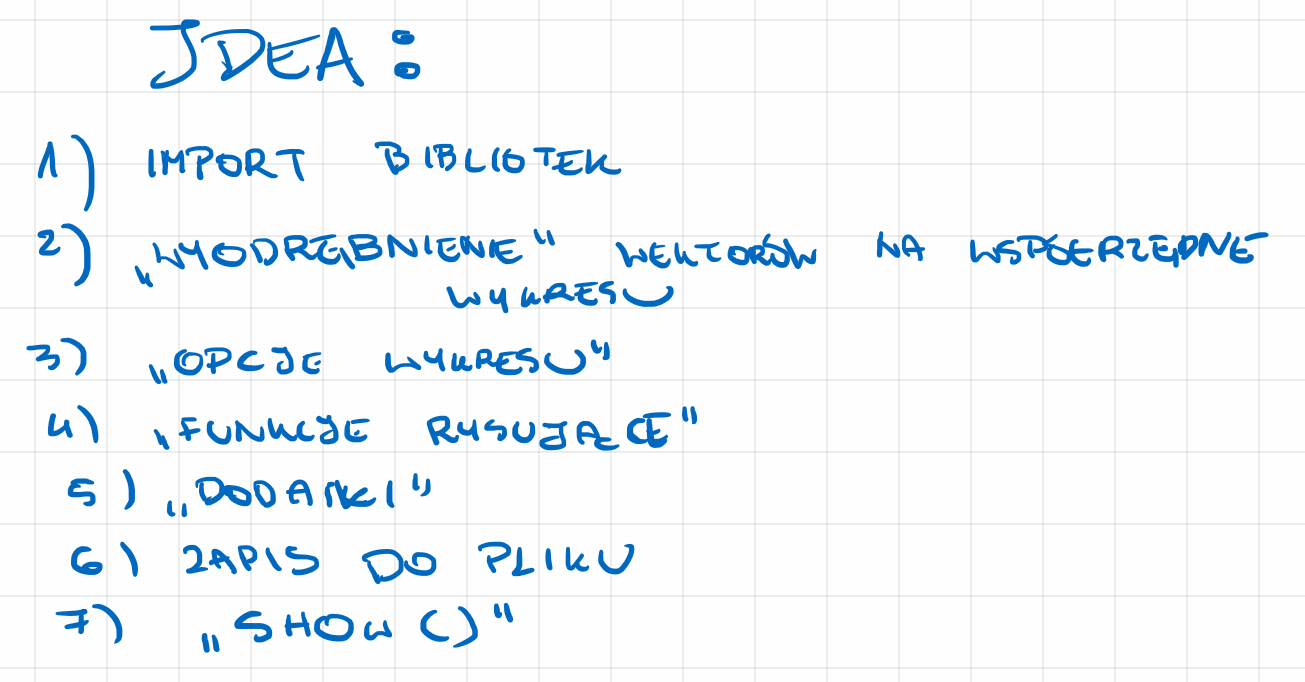 IDEA:
1) IMPORT BIBLIOTEK
2) „WYODRĘBNIENIE" WEKTORÓW NA WSPÓŁRZĘDNE
WYKRESU
3) „OPCJE WYKRESU"
4) „FUNKCJE RYSUJĄCE"
5) „DODATKI"
6) ZAPIS DO PLIKU
7) „SHOW()"